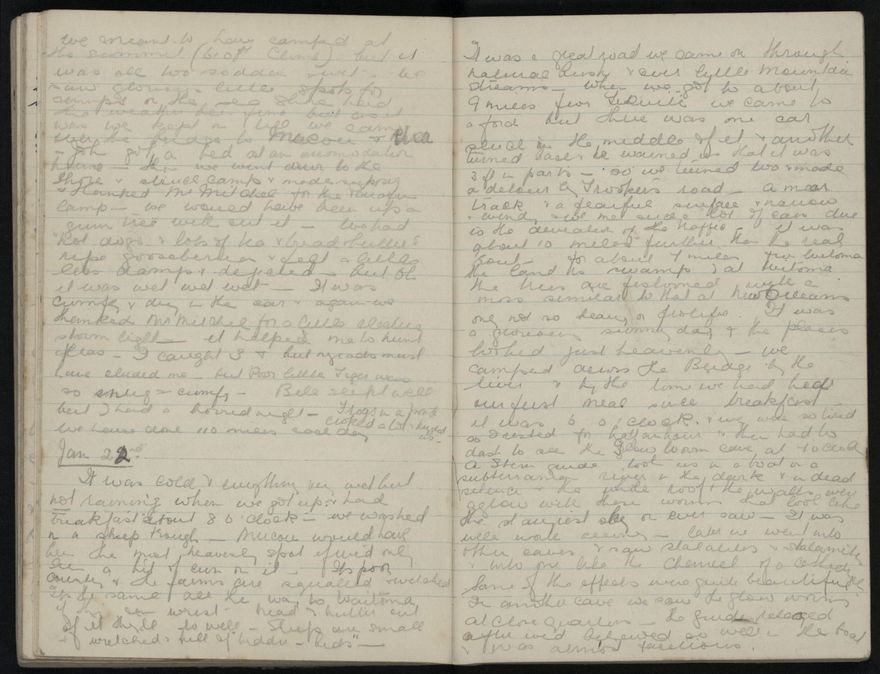 we meant to have camped at
the summit (610 ft Climb) but it
was all too sodden wet — we
saw glorious little spots for
camps on the sea shore had
the weather been fine but as it
was we kept on till we came
over the bridge to Mocau
+ got a bed at an accomodation
house — then we went down to the
shore + struck camp + made supper
+ thanked Mr Mitchel for the
camp — we would have been up a
gum tree without it — we had
hot dogs + lots of tea + bread + butter +
ripe gooseberries + felt a little
less damp + dejected — but oh
it was wet wet wet — It was
comfy + dry in the car + again we
thanked Mr Mitchel for a little electric
storm light — it helped me to hunt
fleas — I caught 3 + but must
have eluded me — but Poor little Tiger was
so snug + comfy — Bill slept well
but I had a horrid night — Frogs in a pond
croaked a lot +
We have done 110 miles to day
Jan 22nd
It was cold + everything very wet but
not raining when we got up + had
breakfast about 8 o'clock — we washed
in a sheep trough — Mocau would have
been the most heavenly spot if we'd only
seen a bit of sun on it — Its poor
country + the farms are squalid + wretched
Its the same all the way to Waitomo
if the
of it — Sheep are small
+ wretched + full of
It was a good road we came on through
natural bush + over little mountain
streams — when we got to about
9 miles from Tekuiti we came to
a ford but there was one car
stuck in the middle of it + another
turned back + he warned us that it was
3 ft in parts — so we turned too + made
a detour by Troopers road — a mere
track + a fearful surface + narrow
+ windy + we met such a lot of cars due
to the deviation of the traffic — it was
about 10 miles further than the real
route — for about 7 miles from Waitomo
the land is swampy + at Waitomo
the trees are festooned with a
moss similar to that at New Orleans
only not so heavy or profuse. It was
a glorious sunny day + the places
looked just heavenly — we
camped across the Bridge by the
river + by the time we had had
our first meal since breakfast —
it was 6 o'clock. + we were so tired
so I rested for half an hour + then had to
dash to see the Glow Worm cave at 7 o'clock
a Stern guide took us in a boat on a
subterranean river + the dark + a dead
silence + the whole roof + walls were
aglow with these worms that look like
the starriest sky one ever saw — It was
well worth seeing — later we went into
other caves + saw stalactites + stalagmites
+ into one like the Chancel of a Cathedral
Some of the effects were quite beautiful
In another cave we saw the glow worms
at close quarters — the guide relaxed
after we'd behaved so well in the boat
+ was almost facetious.